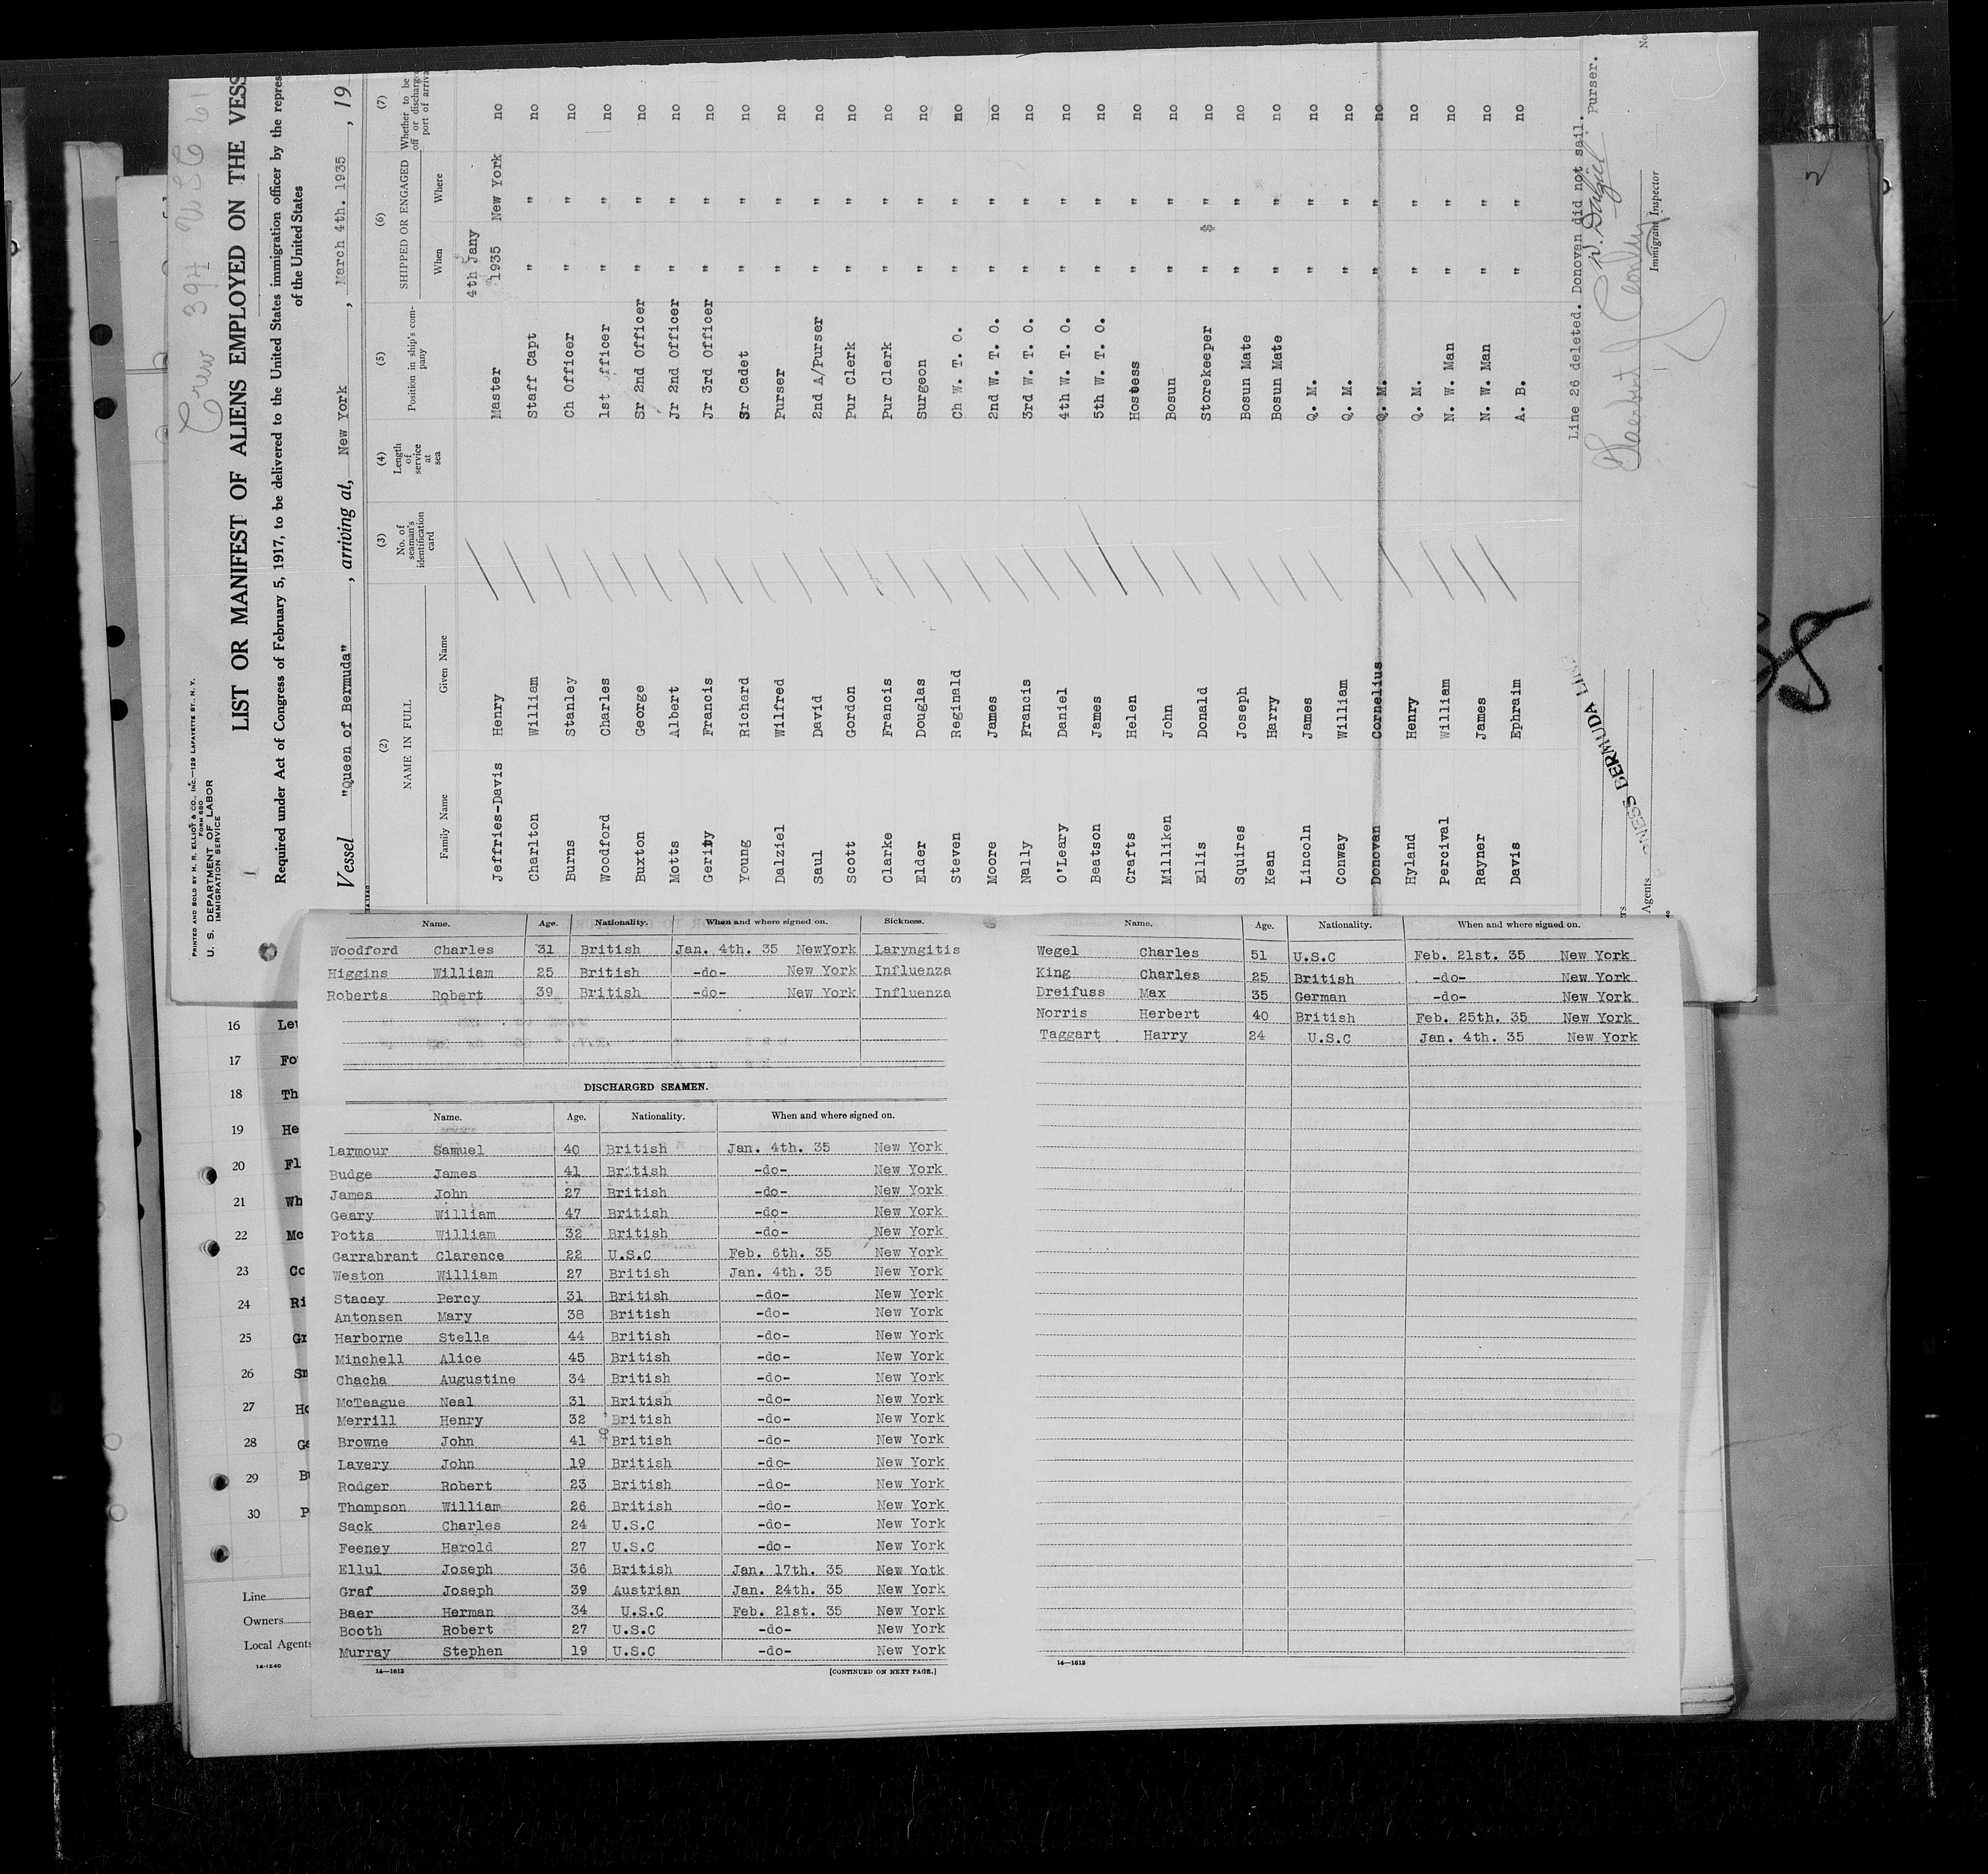 Crew 394 USC 61
PRINTED AND SOLD BY H. R. ELLIOT & CO., INC.—129 LAFAYETTE ST., N.Y.
FORM 680
U. S. DEPARTMENT OF LABOR
IMMIGRATION SERVICE
LIST OR MANIFEST OF ALIENS EMPLOYED ON THE VESS
Required under Act of Congress of February 5, 1917, to be delivered to the United States immigration officer by the repres
of the United States
Vessel "Queen of Bermuda", arriving at, New York, March 4th. 1935, 19
(2) (3) (4) (5) (6) (7)
NAME IN FULL No. of seaman's identification card Length of service at sea Position in ship's company SHIPPED OR ENGAGED Whether to be off or discharge port of arriva
Family Name Given Name When Where
Jeffries-Davis Henry Master 4th Jany 1935 New York no
Charlton William Staff Capt " " no
Burns Stanley Ch Officer " " no
Woodford Charles 1st fficer " " no
Buxton George Sr 2nd Officer " " no
Motts Albert Jr 2nd Officer " " no
Gerity Francis Jr 3rd Officer " " no
Young Richard Sr Cadet " " no
Dalziel Wilfred Purser " " no
Saul David 2nd A/Purser " " no
Scott Gordon Pur Clerk " " no
Clarke Francis Pur Clerk " " no
Elder Douglas Surgeon " " no
Steven Reginald Ch W. T. O. " " no
Moore James 2nd W. T. O. " " no
Nally Francis 3rd W. T. O. " " no
O'Leary Daniel 4th W. T. O. " " no
Beatson James 5th W. T. O. " " no
Crafts Helen Hostess " " no
Milliken John Bosun " " no
Ellis Donald Storekeeper " " no
Squires Joseph Bosun Mate " " no
Kean Harry Bosun Mate " " no
Lincoln James Q. M. " " no
Conway William Q. M. " " no
Donovan Cornelius Q. M. " " no
Hyland Henry Q. M. " " no
Percival William N. W. Man " " no
Rayner James N. W. Man " " no
Davis Ephraim A. B. " " no
Line 26 deleted. Donovan did not sail.
Purser.
Immigrant Inspector
No
NESS BERMUDA LINE
rs
Agents
Name. Age. Nationality. When and where signed on. Sickness.
Woodford Charles 31 British Jan. 4th. 35 NewYork Laryngitis
Higgins William 25 British -do- New York Influenza
Roberts Robert 39 British -do- New York Influenza
DISCHARGED SEAMEN.
Name. Age. Nationality. When and where signed on.
Larmour Samuel 40 British Jan. 4th. 35 New York
Budge James 41 British -do- New York
James John 27 British -do- New York
Geary William 47 British -do- New York
Potts William 32 British -do- New York
Garrabrant Clarence 22 U.S.C Feb. 6th. 35 New York
Weston William 27 British Jan. 4th. 35 New York
Stacey Percy 31 British -do- New York
Antonsen Mary 38 British -do- New York
Harborne Stella 44 British -do- New York
Minchell Alice 45 British -do- New York
Chacha Augustine 34 British -do- New York
McTeague Neal 31 British -do- New York
Merrill Henry 32 British -do- New York
Browne John 41 British -do- New York
Lavery John 19 British -do- New York
Rodger Robert 23 British -do- New York
Thompson William 26 British -do- New York
Sack Charles 24 U.S.C -do- New York
Feeney Harold 27 U.S.C -do- New York
Ellul Joseph 36 British Jan. 17th. 35 New Yotk
Graf Joseph 39 Austrian Jan. 24th. 35 New York
Baer Herman 34 U.S.C Feb. 21st. 35 New York
Booth Robert 27 U.S.C -do- New York
Murray Stephen 19 U.S.C -do- New York
14—1613 [CONTINUED ON NEXT PAGE.]
Name. Age. Nationality. When and where signed on.
Wegel Charles 51 U.S.C Feb. 21st. 35 New York
King Charles 25 British -do- New York
Dreifuss Max 35 German -do- New York
Norris Herbert 40 British Feb. 25th. 35 New York
Taggart Harry 24 U.S.C Jan. 4th. 35 New York
14—1613
16 Lew
17 Fo
18 Th
19 He
20 Fl
21 Wh
22 Mc
23 Co
24 Ri
25 Gr
26 Sm
27 Ho
28 Ge
29 B
30 P
Line
Owners
Local Agents
14-1240